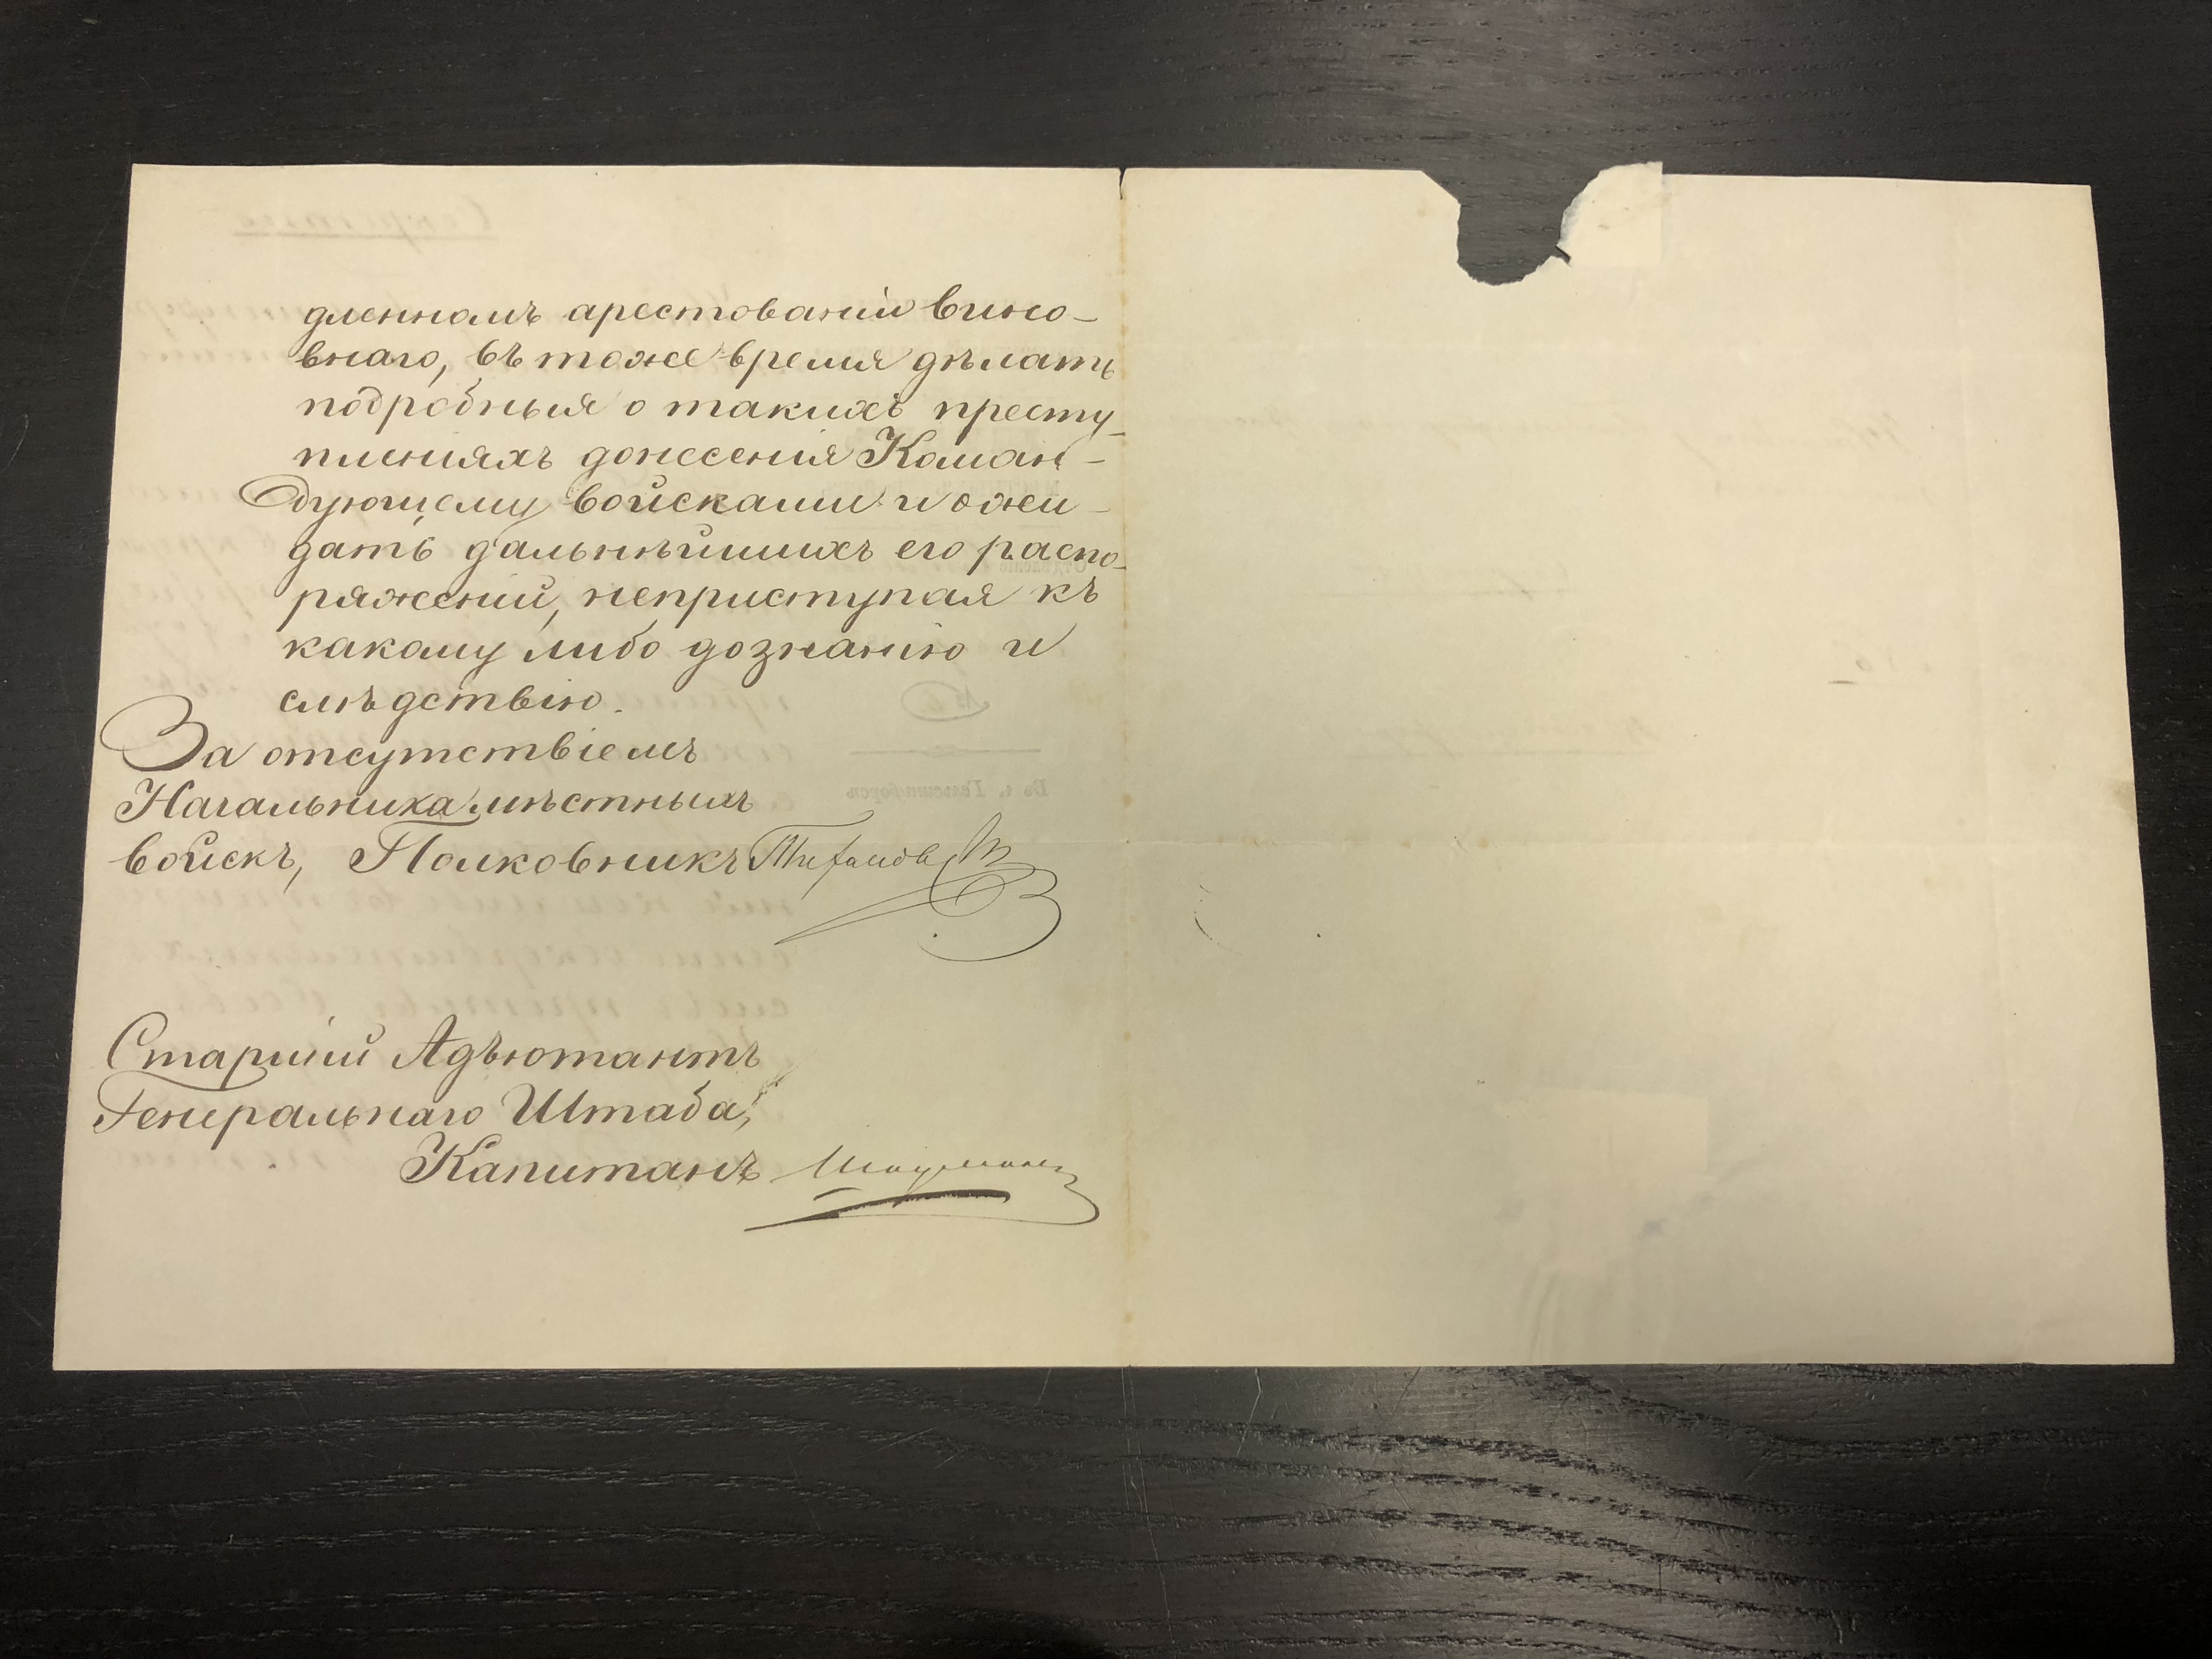 дленномъ арестованіи вино-
внаго, въ тоже время дѣлать
подробныя о такихъ престу-
пленіяхъ донесенія Коман-
дующему войсками и ожи-
дать дальнѣйшихъ его распо-
ряженій, неприступая къ
какому либо дознанію и
слѣдствію.
За отсутствіемъ
Начальника мѣстныхъ
войскъ, Полковникъ
Старшій Адъютантъ
Генеральнаго Штаба,
Капитанъ